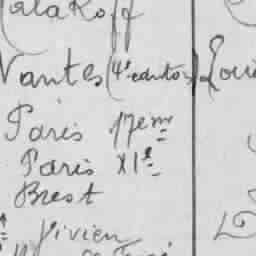 Malakoff
Nantes (4e canton) Loui
Paris 17eme
Paris XIe
Brest
Vivien